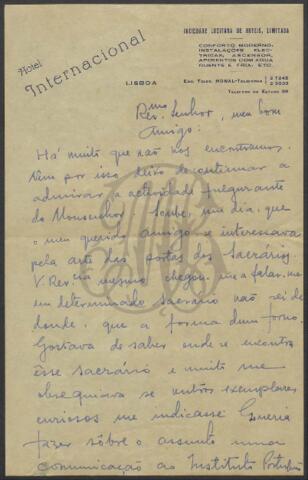 Hotel
Internacional
LISBOA
SOCIEDADE LUSITANA DE HOTEIS, LIMITADA
CONFORTO MODERNO,
INSTALAÇÕES ELEC-
TRICAS, ASCENSOR,
APOSENTOS COM AGUA
QUENTE E FRIA, ETC.
END. TELEG. RONAL-TELEFONES
TELEFONE DO ESTADO
Rev.mo Senhor, meu bom
Amigo:
Há muito que não nos encontramos.
Nem por isso deixo de continuar a
admirar a actividade fulgurante
do Monsenhor. Soube, um dia, que
o meu querido amigo se interessava
pela arte das portas dos Sacrários.
V. Rev.ma mesmo chegou-me a falar-me
em determinado Sacrário não sei de
donde, que a forma dum forno
Gostava de saber onde se encontra
êsse sacrário e muito me
obsequiava se outros exemplares
curiosos me indicasse. Queria
fazer sôbre o assunto uma
comunicação ao Instituto Português